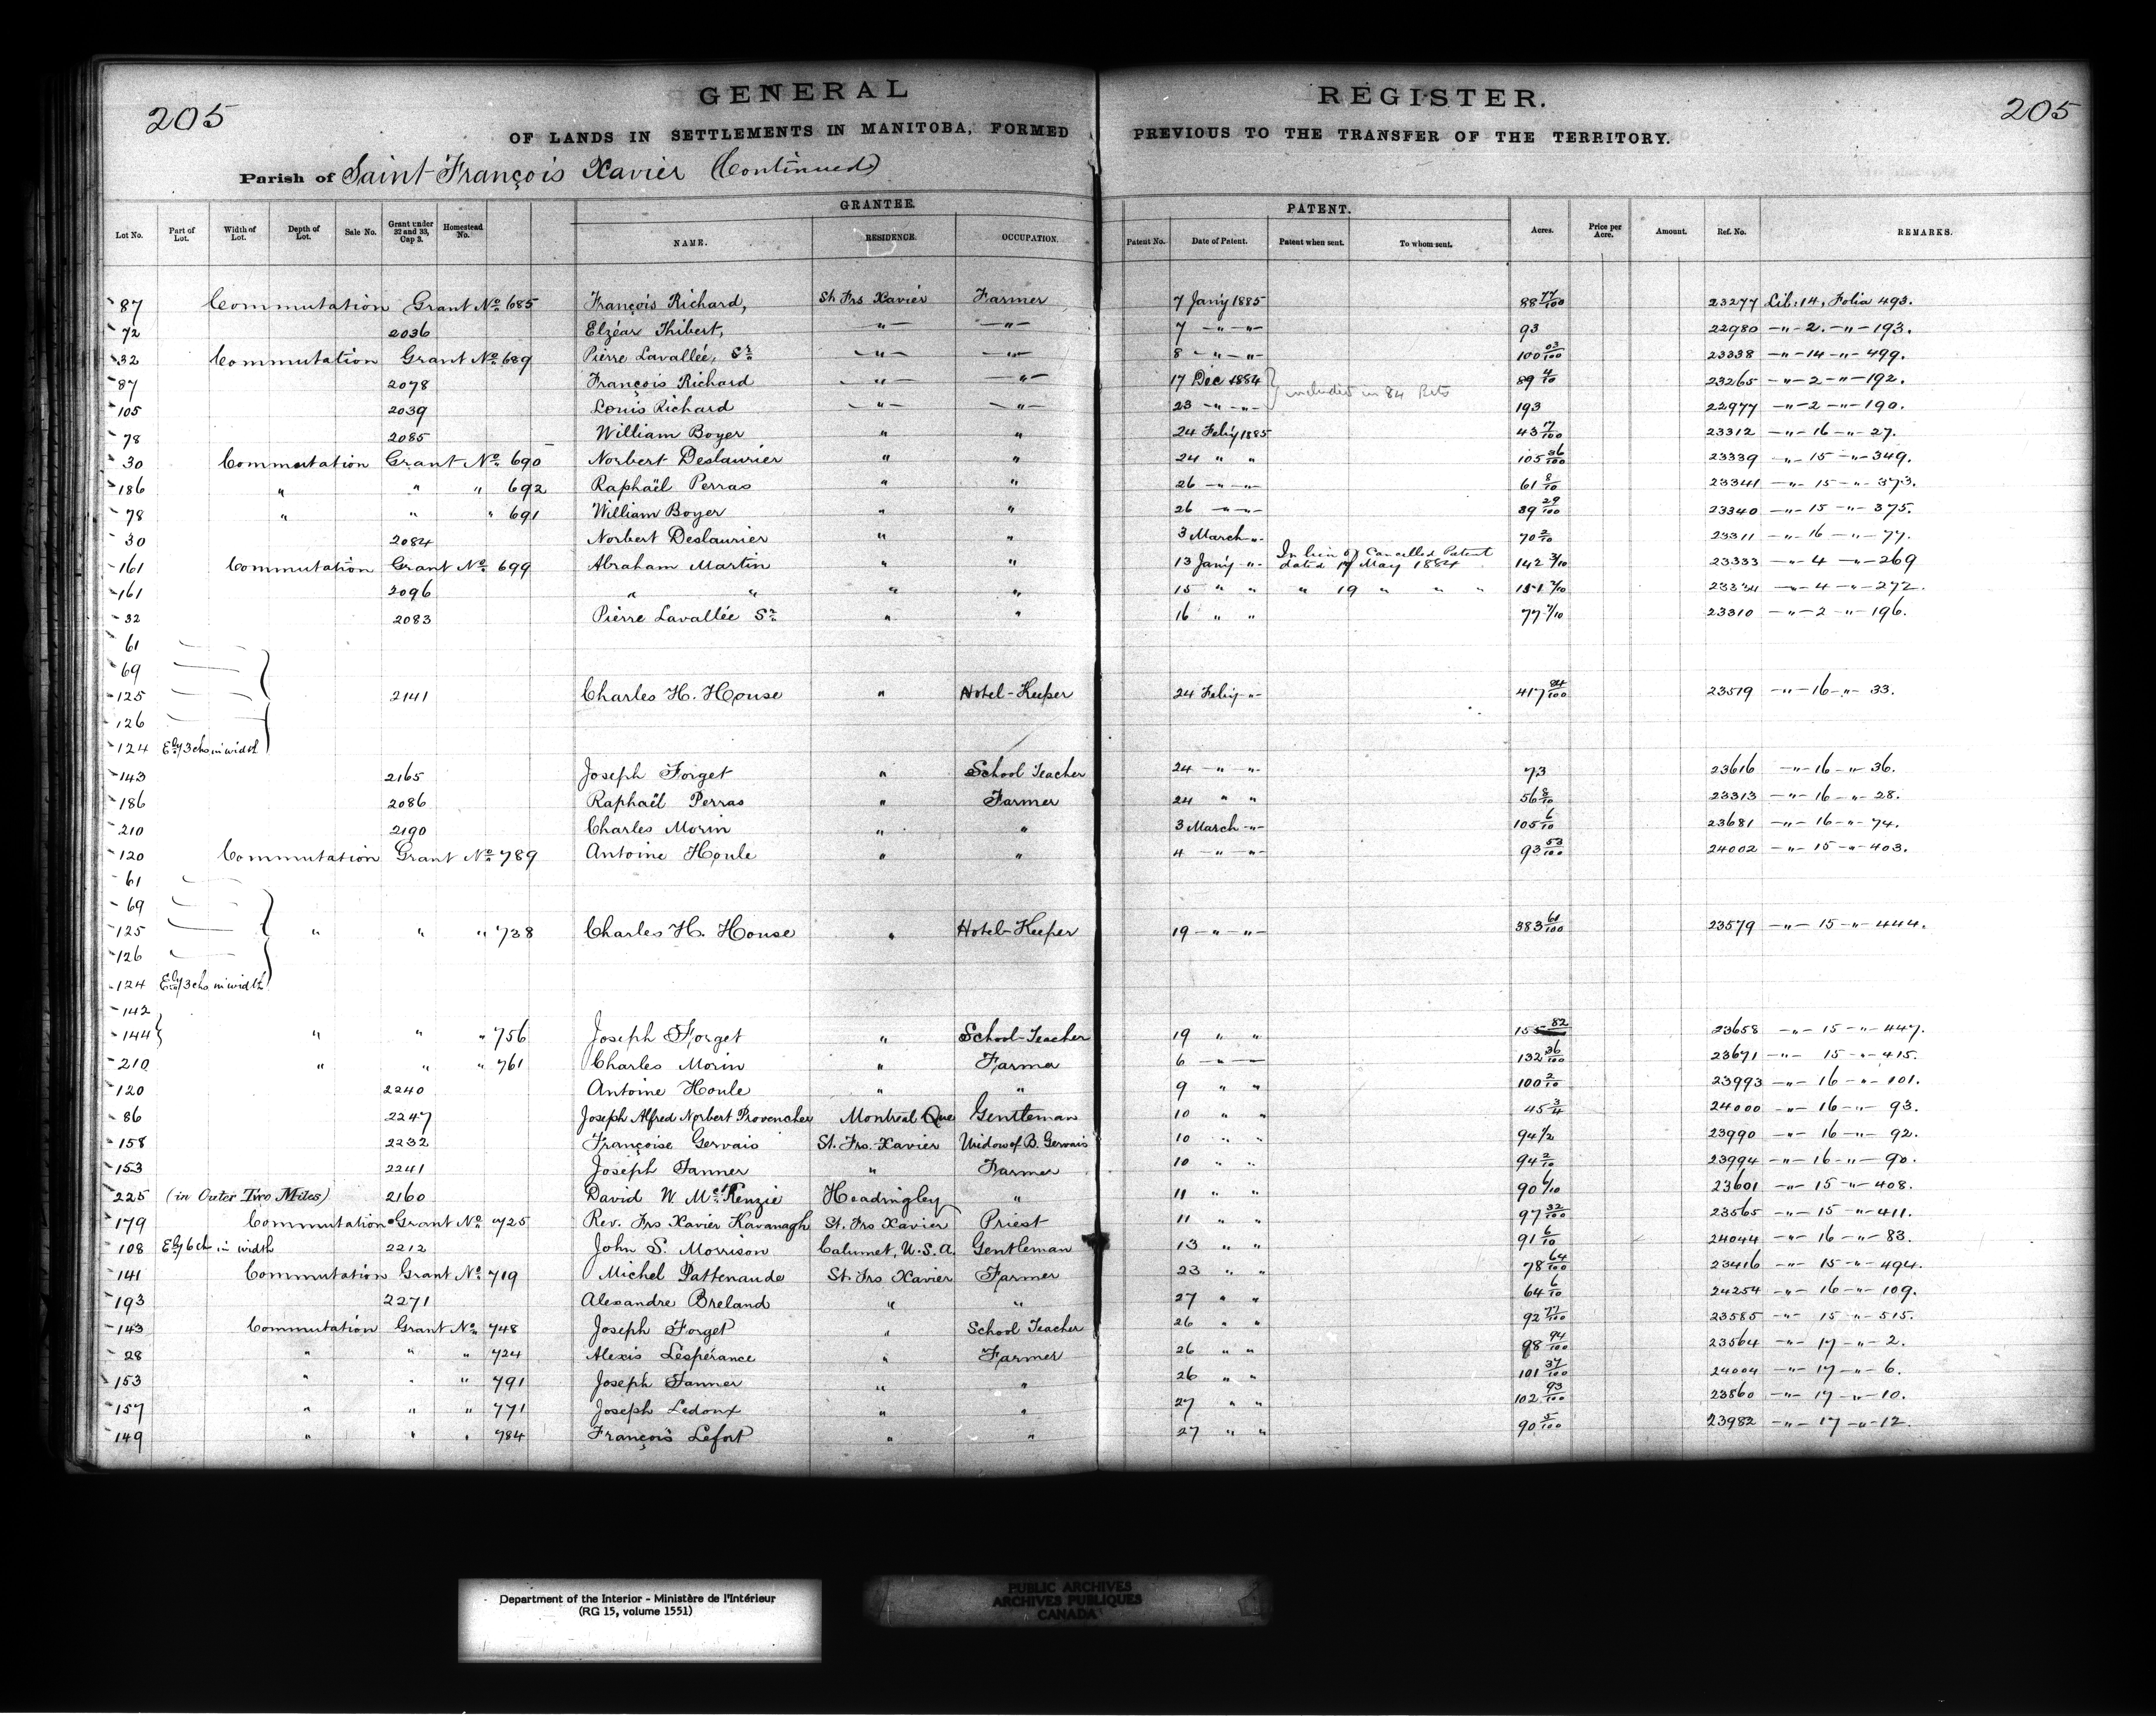 205
GENERAL REGISTER.
205
OF LANDS IN SETTLEMENTS IN MANITOBA, FORMED PREVIOUS TO THE TRANSFER OF THE TERRITORY.
Parish of Saint François Xavier (Continued)
GRANTEE. PATENT.
Lot No. Part of Lot. Width of Lot. Depth of Lot. Sale No. Grant under 32 and 33, Cap 3. Homestead No. NAME. RESIDENCE. OCCUPATION. Patent No. Date of Patent. Patent when sent. To whom sent. Acres. Price per Acre. Amount. Ref. No. REMARKS.
87 Commutation Grant No 685 François Richard, St. Frs Xavier Farmer 7 Jan'y 1885 88 77/100 23277 Lib: 14, Folia 493.
72 2036 Elzéar Thibert, " " 7 " " 93 22980 " 2. " 193.
32 Commutation Grant No 689 Pierre Lavallée, Sr " " 8 " " 100 03/100 23338 " 14 " 499.
87 2078 François Richard " " 17 Dec 1884 89 4/10 23265 " 2 " 192.
included in 84 Rets
105 2039 Louis Richard " " 23 " " 193 22977 " 2 " 190.
78 2085 William Boyer " " 24 Feb'y 1885 43 17/100 23312 " 16 " 27.
30 Commutation Grant No 690 Norbert Deslaurier " " 24 " " 105 36/100 23339 " 15 " 349.
186 " " " 692 Raphaël Perras " " 26 " " 61 8/10 23341 " 15 " 373.
78 " " " 691 William Boyer " " 26 " " 39 29/100 23340 " 15 " 375.
30 2084 Norbert Deslaurier " " 3 March " 70 2/10 23311 " 16 " 77.
161 Commutation Grant No 699 Abraham Martin " " 13 Jan'y " In lieu of Cancelled Patent dated 17 May 1884 142 3/10 23333 " 4 " 269
161 2096 " " " " 15 " " " 19 " " " 23334 " 4 " 272.
32 2083 Pierre Lavallée Sr " " 16 " " 77 7/10 23310 " 2 " 196.
61
69
125 2141 Charles H. House " Hotel-Keeper 24 Feb'y " 417 84/100 23519 " 16 " 33.
126
124 Ely 3 chs in width
143 2165 Joseph Forget " School Teacher 24 " " 73 23616 " 16 " 36.
186 2086 Raphaël Perras " Farmer 24 " " 56 8/10 23313 " 16 " 28.
210 2190 Charles Morin " " 3 March " 105 6/10 23681 " 16 " 74.
120 Commutation Grant No 789 Antoine Houle " " 4 " " 93 53/100 24002 " 15 " 403.
61
69
125 " " " 738 Charles H. House " Hotel-Keeper 19 " " 383 61/100 23579 " 15 " 444.
126
124 Ely 3 chs in width
142
144 " " " 756 Joseph Forget " School-Teacher 19 " " 155 82 23658 " 15 " 447.
210 " " " 761 Charles Morin " Farmer 6 " " 132 36/100 23671 " 15 " 415.
120 2240 Antoine Houle " " 9 " " 100 2/10 23993 " 16 " 101.
86 2247 Joseph Alfred Norbert Provencher Montreal Que Gentleman 10 " " 45 3/4 24000 " 16 " 93.
158 2232 Françoise Gervais St. Frs. Xavier Widow of B. Gervais 10 " " 94 1/2 23990 " 16 " 92.
153 2241 Joseph Tanner " Farmer 10 " " 94 2/10 23994 " 16 " 90.
225 (in Outer Two Miles) 2160 David W. McKenzie Headingley " 11 " " 90 6/10 23601 " 15 " 408.
179 Commutation Grant No 725 Rev. Frs Xavier Kavanagh St. Frs Xavier Priest 11 " " 97 32/100 23565 " 15 " 411.
108 Ely 6 ch in width 2212 John S. Morrison Calumet, U.S.A. Gentleman 13 " " 91 6/10 24044 " 16 " 83.
141 Commutation Grant No 719 Michel Pattenaude St. Frs Xavier Farmer 23 " " 78 64/100 23416 " 15 " 494.
193 2271 Alexandre Breland " " 27 " " 64 6/10 24254 " 16 " 109.
143 Commutation Grant No 748 Joseph Forget " School Teacher 26 " " 92 77/100 23585 " 15 " 515.
28 " " " 724 Alexis Lespérance " Farmer 26 " " 98 94/100 23564 " 17 " 2.
153 " " " 791 Joseph Tanner " " 26 " " 101 37/100 24004 " 17 " 6.
157 " " " 771 Joseph Ledoux " " 27 " " 102 93/100 23860 " 17 " 10.
149 " " " 784 François Lefort " " 27 " " 90 5/100 23982 " 17 " 12.
Department of the Interior - Ministère de l'Intérieur
(RG 15, volume 1551)
PUBLIC ARCHIVES
ARCHIVES PUBLIQUES
CANADA